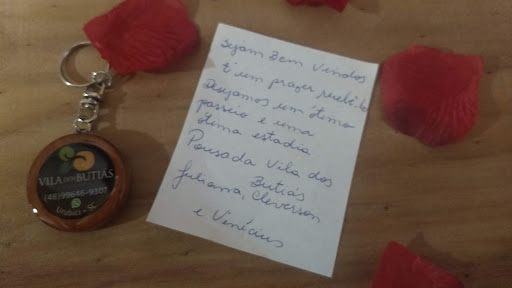 Sejam Bem Vindos
É um prazer recebê-los
Desejamos um ótimo
passeio e uma
ótima estadia
Pousada Vila dos
Butiás
Juliana, Cleverson
e Vinícius
VILA DOS BUTIÁS
(48)99646-9307